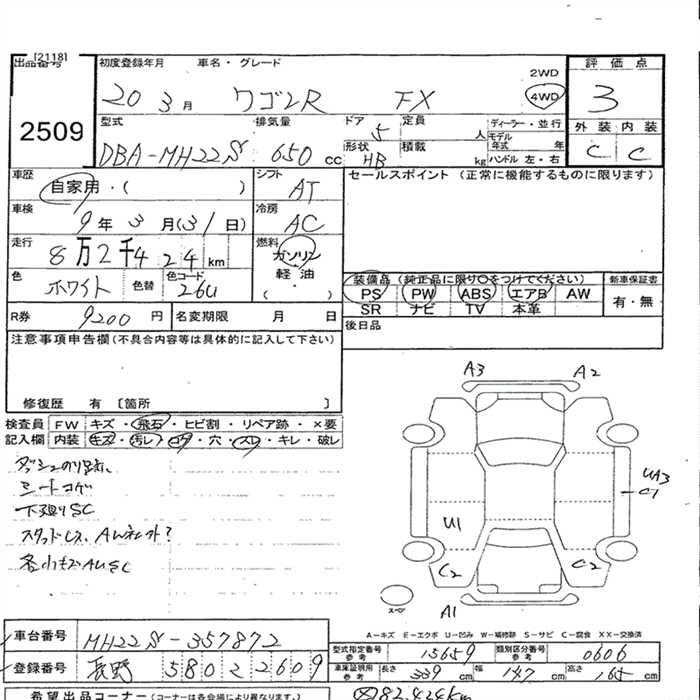 [2118]
出品番号
2509
初度登録年月
車名・グレード
20 3月 ワゴンR FX
2WD
4WD
評価点
3
外装 内装
C C
型式 排気量 ドア 定員
DBA-MH22S 650cc 5 人
形状 積載
HB kg
ディーラー・並行
モデル年式 年
ハンドル 左・右
車歴
自家用・( )
シフト
AT
車検
9年3月(31日)
冷房
AC
走行
8万2千424km
燃料
ガソリン
軽油
( )
色
ホワイト
色替
色コード
26U
R券 9200円
名変期限 月 日
セールスポイント (正常に機能するものに限ります)
装備品 (純正品に限り○をつけてください)
PS PW ABS エアB AW
SR ナビ TV 本革
新車保証書
有・無
後日品
注意事項申告欄(不具合内容等は具体的に記入して下さい)
修復歴 有 [箇所 ]
検査員 FW キズ・飛石・ヒビ割・リペア跡・×要
記入欄 内装 キズ・汚レ・コゲ・穴・スレ・キレ・破レ
シートコゲ
下廻りSC
スタッドレス、AWネット?
各小キズAUSC
A3 A2
UA3
C1
U1
C2 C2
A1
スペア
A-キズ E-エクボ U-凹み W-補修跡 S-サビ C-腐食 XX-交換済
車台番号 MH22S-357872
登録番号 長野 580 2 2609
型式指定番号 参考 15659
類別区分番号 参考 0606
車庫証明用 参考 長さ 339cm 幅 147cm 高さ 165cm
希望出品コーナー (コーナーは各会場により異なります。)
82,424km